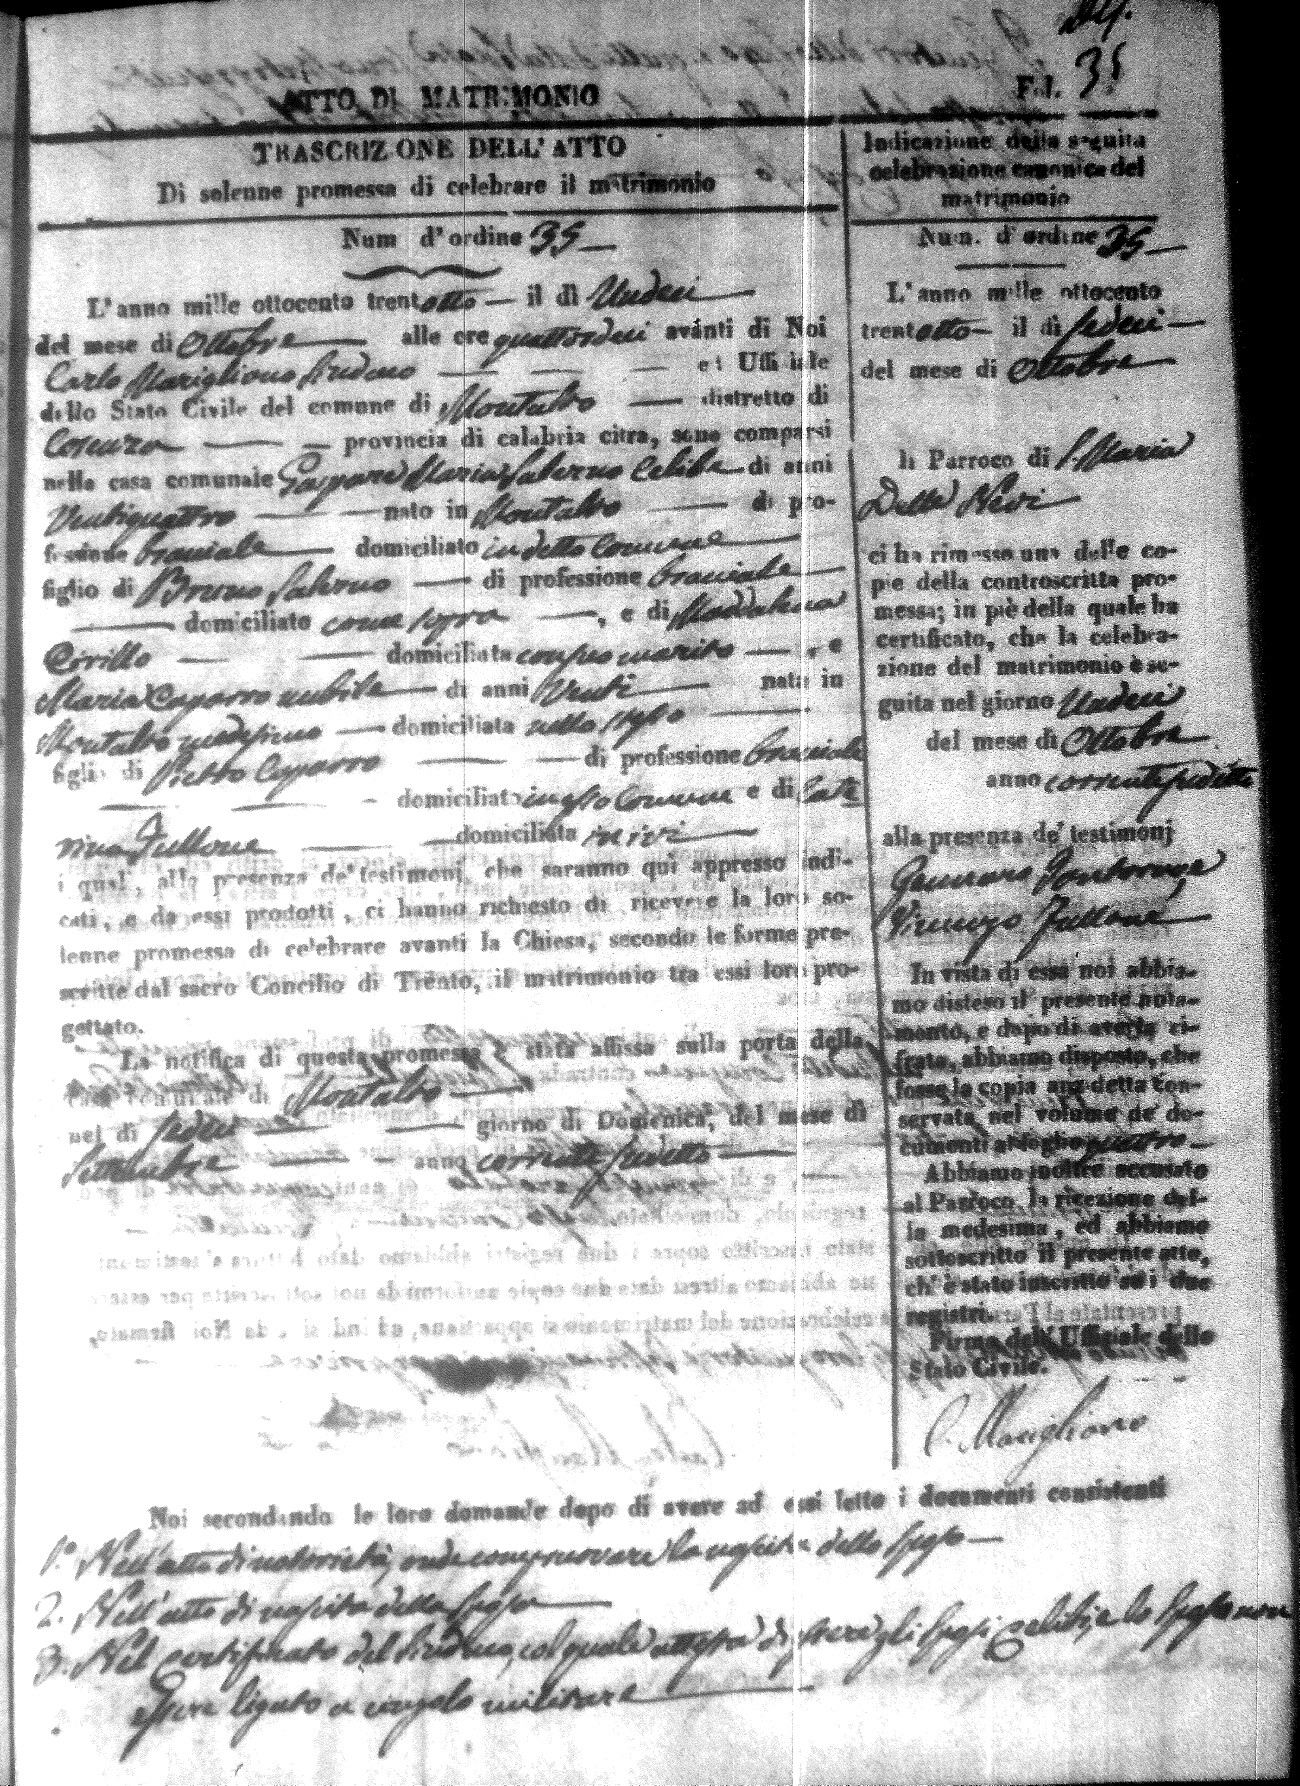 35
ATTO DI MATRIMONIO
Fol.
TRASCRIZIONE DELL'ATTO
Di solenne promessa di celebrare il matrimonio
Num d'ordine 35
L'anno mille ottocento trentotto il dì Undeci
del mese di Ottobre alle ore quattordeci avanti di Noi
Carlo Marigliano Sindaco ed Uffiziale
dello Stato Civile del comune di Montalto distretto di
Cosenza provincia di calabria citra, sono comparsi
nella casa comunale Gaspare Maria Salerno Celibe di anni
Ventiquattro nato in Montalto di pro-
fessione bracciale domiciliato in detto Comune
figlio di Bruno Salerno di professione bracciale
domiciliato come sopra, e di Maddalena
Cirillo domiciliata con suo marito, e
Maria Caparro nubile di anni Venti nata in
Montalto medesimo domiciliata nello stesso
figlia di Pietro Caparro di professione bracciale
domiciliato in esso Comune e di Cate
rina Fullone domiciliata ne ivi
i quali, alla presenza de' testimoni, che saranno qui appresso indi-
cati, e da essi prodotti, ci hanno richiesto di ricevere la loro so-
lenne promessa di celebrare avanti la Chiesa, secondo le forme pre-
scritte dal sacro Concilio di Trento, il matrimonio tra essi loro pro-
gettato.
La notifica di questa promessa è stata affissa sulla porta della
casa comunale di Montalto
nel dì sedeci giorno di Domenica, del mese di
Settembre anno corrente sudetto
Indicazione della seguita
celebrazione canonica del
matrimonio
Num. d'ordine 35
L'anno mille ottocento
trentotto il dì sedeci
del mese di Ottobre
Il Parroco di S. Maria
Della Nevi
ci ha rimesso una delle co-
pie della controscritta pro-
messa; in piè della quale ha
certificato, che la celebra-
zione del matrimonio è se-
guita nel giorno Undeci
del mese di Ottobre
anno corrente sudetto
alla presenza de' testimonj
Gennaro
Vincenzo Fullone
In vista di essa noi abbia-
mo disteso il presente nota-
mento, e dopo di averla ci-
frata, abbiamo disposto, che
fosse la copia anzidetta con-
servata nel volume de' do-
cumenti al foglio quattro
Abbiamo inoltre accusato
al Parroco la ricezione del-
la medesima, ed abbiamo
sottoscritto il presente atto,
ch' è stato inscritto su i due
registri.
Firma dell' Uffiziale dello
Stato Civile.
C. Marigliano
Noi secondando le loro domande dopo di avere ad essi letto i documenti consistenti
1.° Nell'atto di notorietà, onde compruovare la nascita dello sposo
2. Nell'atto di nascita della sposa
3. Nel certificato del Sindaco, col quale attesta di essere gli sposi celibi, e lo sposo non
essere ligato a vincolo militare